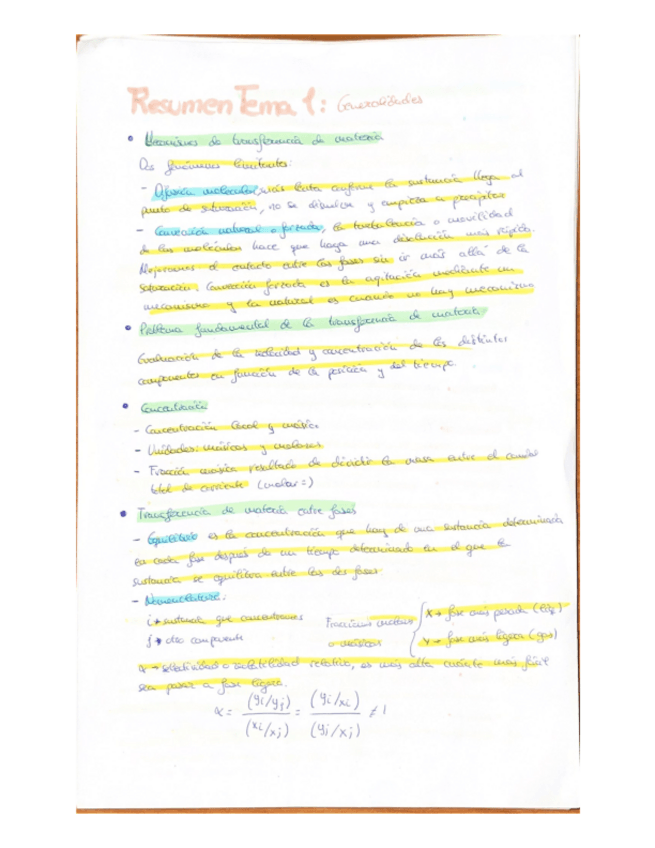 Resumen Tema 1: Generalidades
• Mecanismos de transferencia de materia
Dos fenómenos limitantes:
- Difusión molecular, más lenta conforme la sustancia llega al
punto de saturación, no se disuelve y empieza a precipitar
- Convección natural o forzada, la turbulencia o movilidad
de las moléculas hace que haya una disolución más rápida.
Mejoramos el contacto entre las fases sin ir más allá de la
saturación. Convección forzada es la agitación mediante un
mecanismo y la natural es cuando no hay mecanismo
• Problema fundamental de la transferencia de materia
Evaluación de la velocidad y concentración de los distintos
componentes en función de la posición y del tiempo.
• Concentración
- Concentración local y másica
- Unidades: másicas y molares
- Fracción másica resultado de dividir la masa entre el caudal
total de corriente (molar =)
• Transferencia de materia entre fases
- Equilibrio es la concentración que hay de una sustancia determinada
en cada fase después de un tiempo determinado en el que la
sustancia se equilibra entre las dos fases
- Nomenclatura:
i → sustancia que concentramos
j → otro componente
Fracciones molares
o másicas
x → fase más pesada (líq)
y → fase más ligera (gas)
α → selectividad o volatilidad relativa, es más alta cuanto más fácil
sea pasar a fase ligera.
α = (yi/yj) / (xi/xj) = (yi/xi) / (yj/xj) ≠ 1